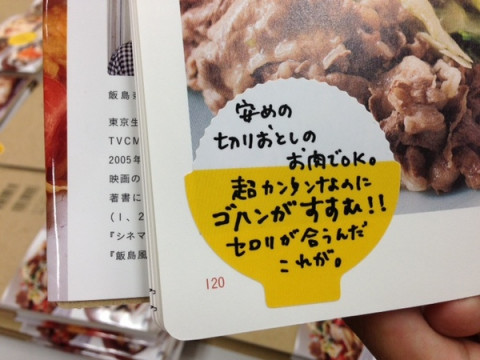 飯島
東京生
TVCM
2005年
映画の
著書に
(I、2
『シネマ
『飯島風
安めの
切りおとしの
お肉でOK。
超カンタンなのに
ゴハンがすすむ!!
セロリが合うんだ
これが。
120